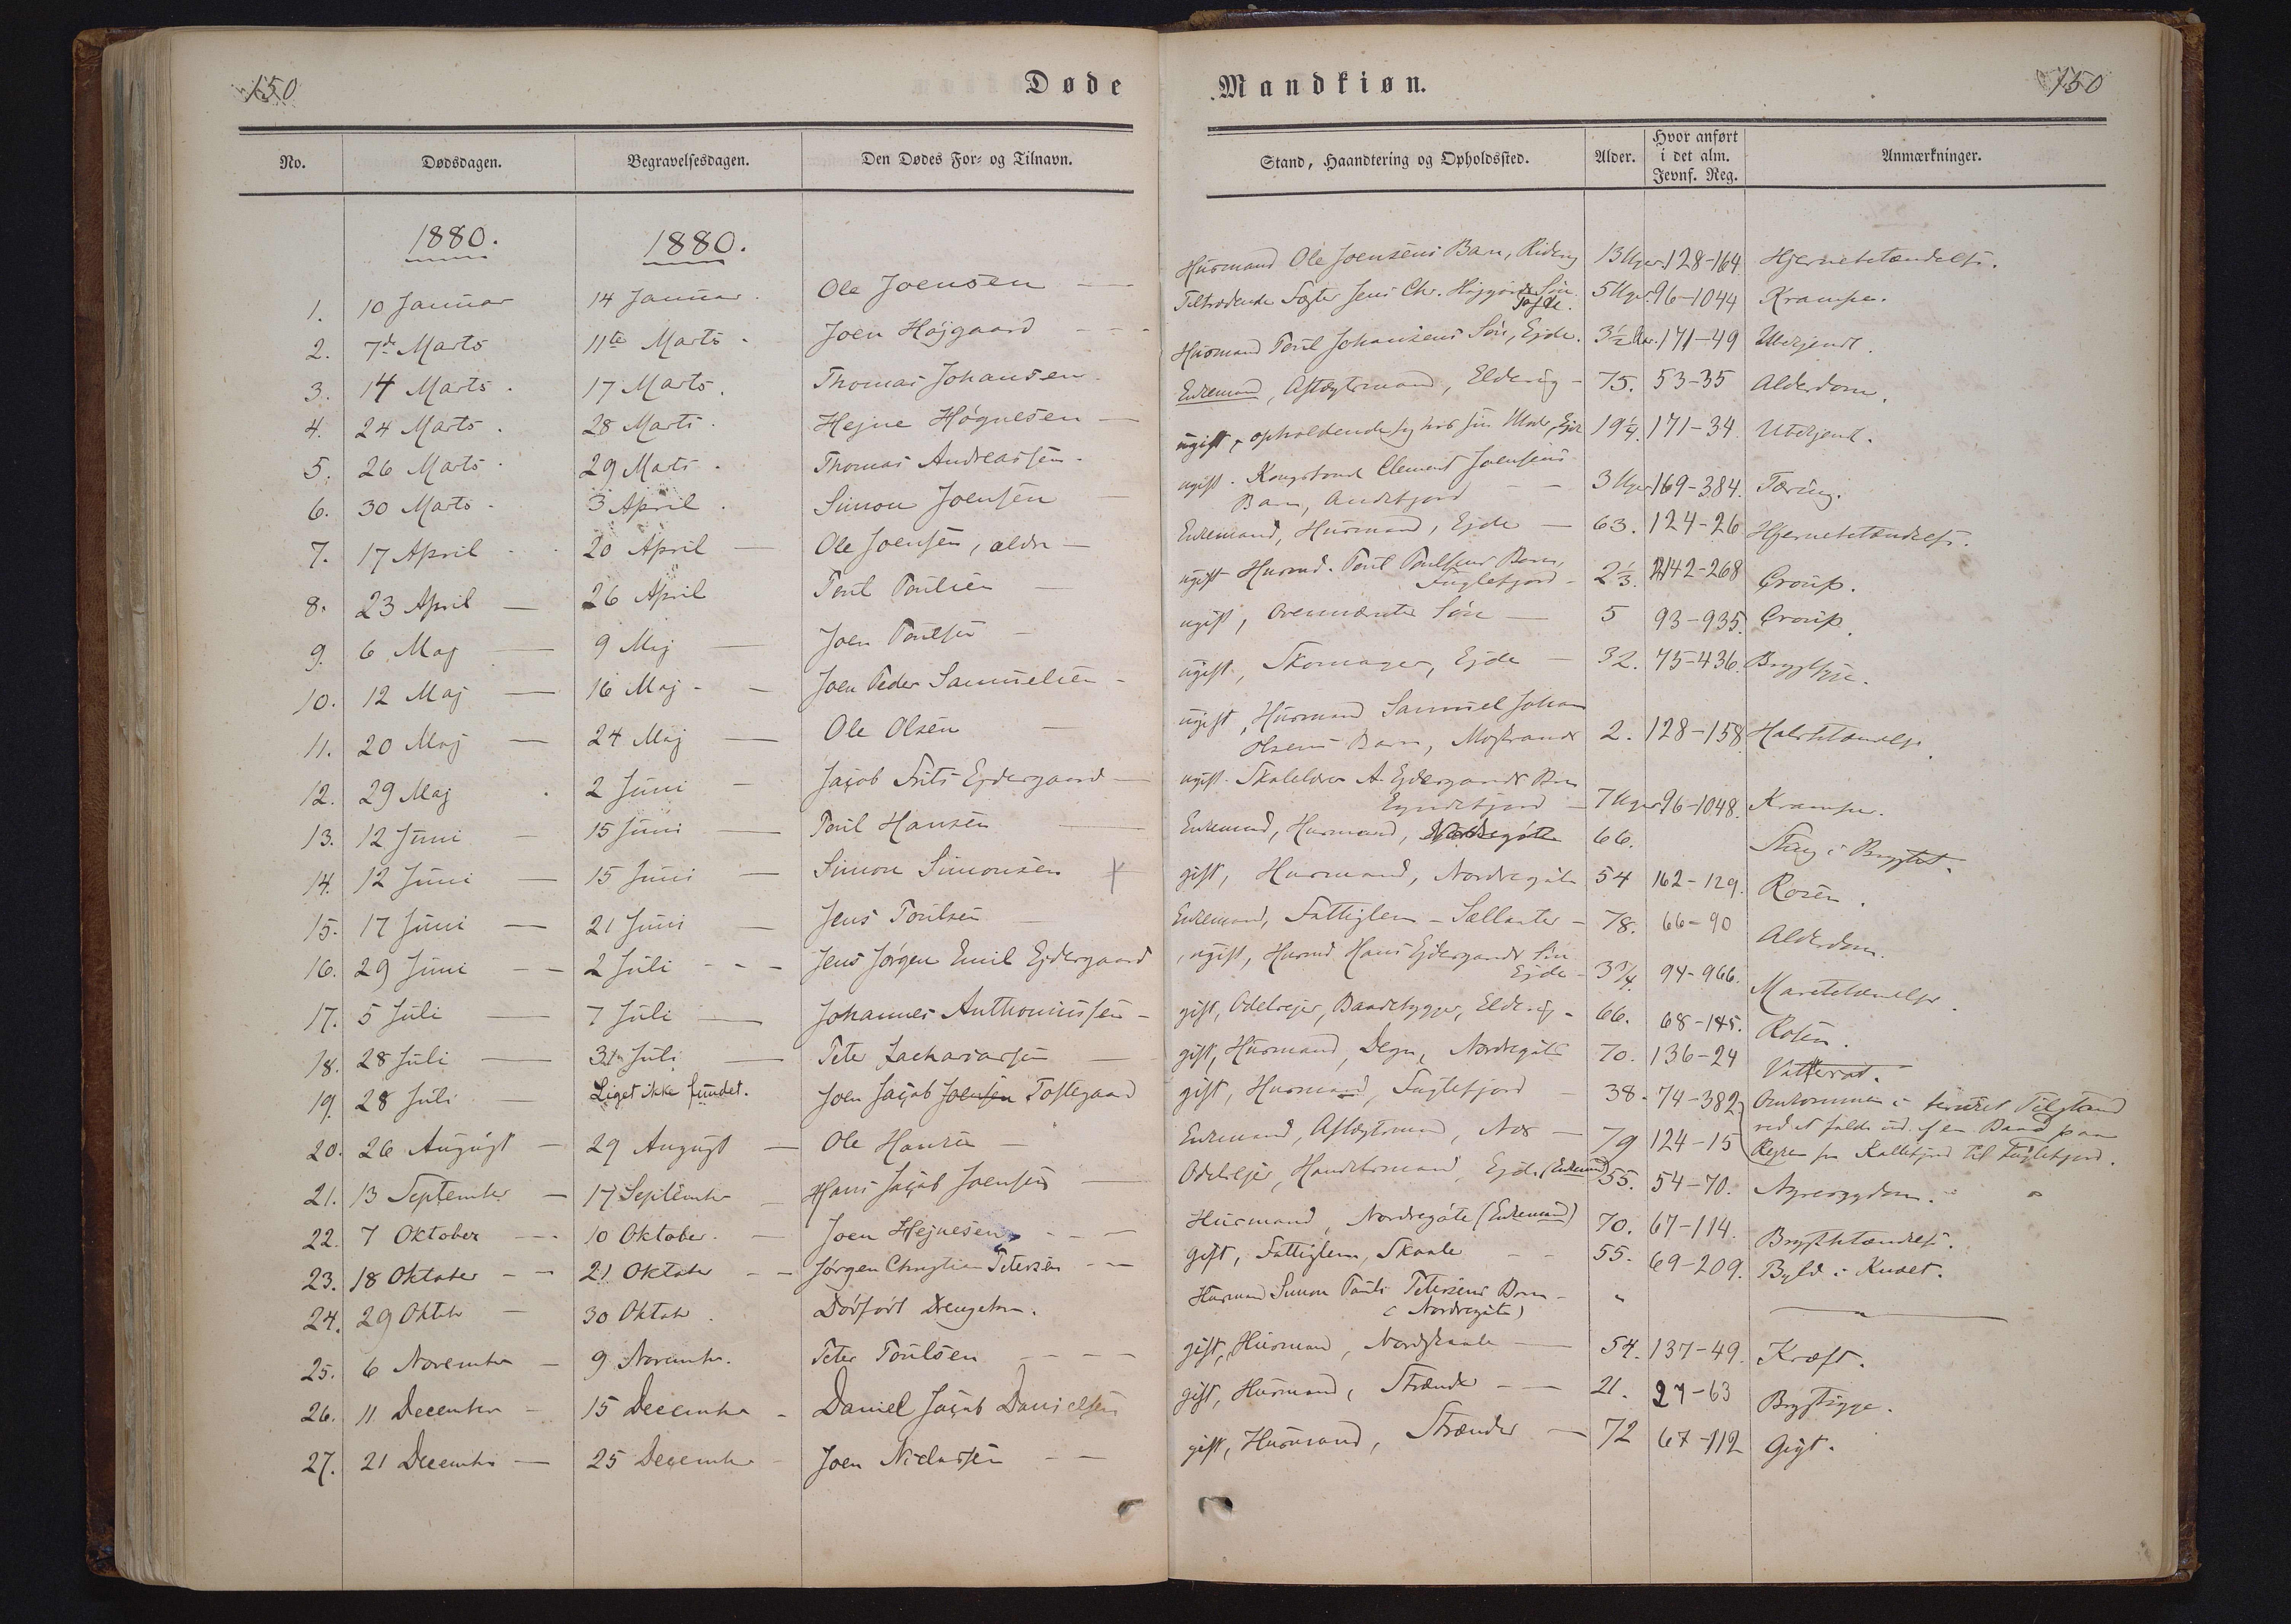 150
Døde
Mandkiøn.
150
No.
Dødsdagen.
Begravelsesdagen.
Den Dødes For- og Tilnavn.
Stand, Haandtering og Opholdssted.
Alder.
Hvor anført
i det alm.
Jevnf. Reg.
Anmærkninger.
1880.
1880.
1. 10 Januar 14 Januar. Ole Joensen — Husmand Ole Joensens Barn, 13 Uger. 128-164. Hjernebetændelse.
2. 7de Marts 11te Marts. Joen Højgaard - - - Tiltrædende Fæster Jens Chr. Højgaards Søn 5 Uger. 96-1044 Krampe.
3. 14 Marts. 17 Marts. Thomas Johansen Husmand Poul Johansens Søn, Ejde. 3½ Aar. 171-49 Ubekjendt.
4. 24 Marts. 28 Marts. Hejne Høgnesen — Enkemand, Aftægtsmand, Eldevig - 75. 53-35 Alderdom.
5. 26 Marts. 29 Marts. Thomas Andreassen - ugift, opholdende sig hos sin Moder, Ejde 19¼. 171-34 Ubekjend.
6. 30 Marts. 3 April. Simon Joensen — ugift. Kongsbonde Clement Joensens
Barn, Andefjord — — 3 Uger 169-384. Tæring.
7. 17 April - - 20 April — Ole Joensen, ældre — Enkemand, Husmand, Ejde — 63. 124-26 Hjernebetændelse.
8. 23 April — 26 April Poul Poulsen — ugift Husmd. Poul Poulsens Barn,
Fuglefjord - 2⅓. 142-268 Croup.
9. 6 Maj — 9 Maj — Joen Poulsen — ugift, ovennævntes Søn — 5 93-935. Croup.
10. 12 Maj — 16 Maj - — Joen Peder Samuelsen - ugift, Skomager, Ejde — 32. 75-436. Brystsyge.
11. 20 Maj — 24 Maj — Ole Olsen — ugift, Husmand Samuel Johan
Olsens Barn, 2. 128-158 Halsbetændelse.
12. 29 Maj - 2 Juni — Jacob Frits Ejdesgaard — ugift. A. Ejdesgaards Barn
7 Uger 96-1048. Krampe.
13. 12 Juni — 15 Juni — Poul Hansen — Enkemand, Husmand, Nordregøte 66. Sting i Brystet.
14. 12 Juni — 15 Juni — Simon Simonsen gift, Husmand, Nordregøte 54 162-129. Rosen.
15. 17 Juni — 21 Juni — Jens Poulsen — Enkemand, Fattiglem - Sellatter - 78. 66-90 Alderdom.
16. 29 Juni - - 2 Juli - - - Jens Jørgen Emil Ejdesgaard ugift, Husmd. Hans Ejdesgaards Søn
Ejde - 3¾. 94-966.
17. 5 Juli — 7 Juli — Johannes Anthoniussen - gift, Odelsejer, Baadebygger, Eldevig - 66. 68-145. Rosen.
18. 28 Juli — 31 Juli — Peter Zachariasen — gift, Husmand, Degn, Nordregøte 70. 136-24 Vattersot.
19. 28 Juli — Liget ikke fundet. Joen Jacob Joensen Toftegaard gift, Husmand, Fuglefjord 38. 74-382. Omkommen i beruset Tilstand
ved at falde ud af en Baad paa
Rejsen fra Kollefjord til Fuglefjord.
20. 26 August — 29 August — Ole Hansen — Enkemand, Aftægtsmand, Næs — 79 124-15
21. 13 September — 17 September — Hans Jacob Joensen — Odelsejer, Handelsmand, Ejde (Enkemand) 55. 54-70. Nyresygdom.
22. 7 Oktober - - - 10 Oktober. — Joen Hejnesen - - - Husmand, Nordregøte (Enkemand) 70. 67-114. Brystbetændelse.
23. 18 Oktober - - 21 Oktober - - Jørgen Christian Petersen - - gift, Fattiglem, Skaale - - 55. 69-209. Byld i Knæet.
24. 29 Oktober — 30 Oktober. Dødfødt Drengebarn. Husmand Simon Pauli Petersens Barn -
(Nordregøte)
25. 6 November — 9 November. Peter Poulsen - - - gift, Husmand, Nordskaale — 54. 137-49. Kræft.
26. 11 December - 15 December - Daniel Jacob Danielsen gift, Husmand, Strænder - — 21. 27-63 Brystsyge.
27. 21 December — 25 December - Joen Niclassen - - gift, Husmand, Strænder — 72 67-112 Gigt.